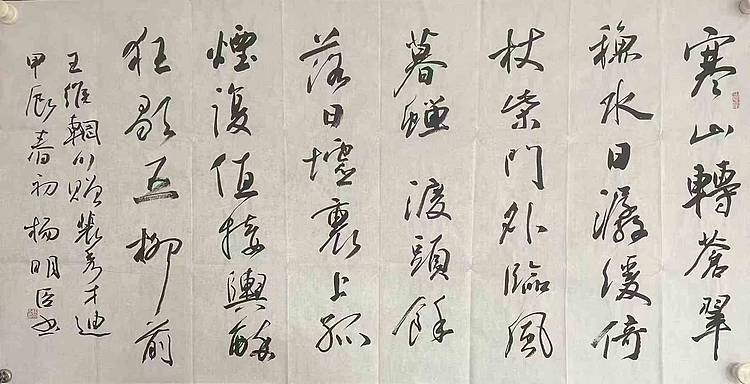 寒山轉蒼翠
秋水日潺湲倚
杖柴門外臨風
暮蟬渡頭餘
落日墟裏上孤
煙復值接輿醉
狂歌五柳前
王維輞川贈裴秀才迪
甲辰春初楊明臣書